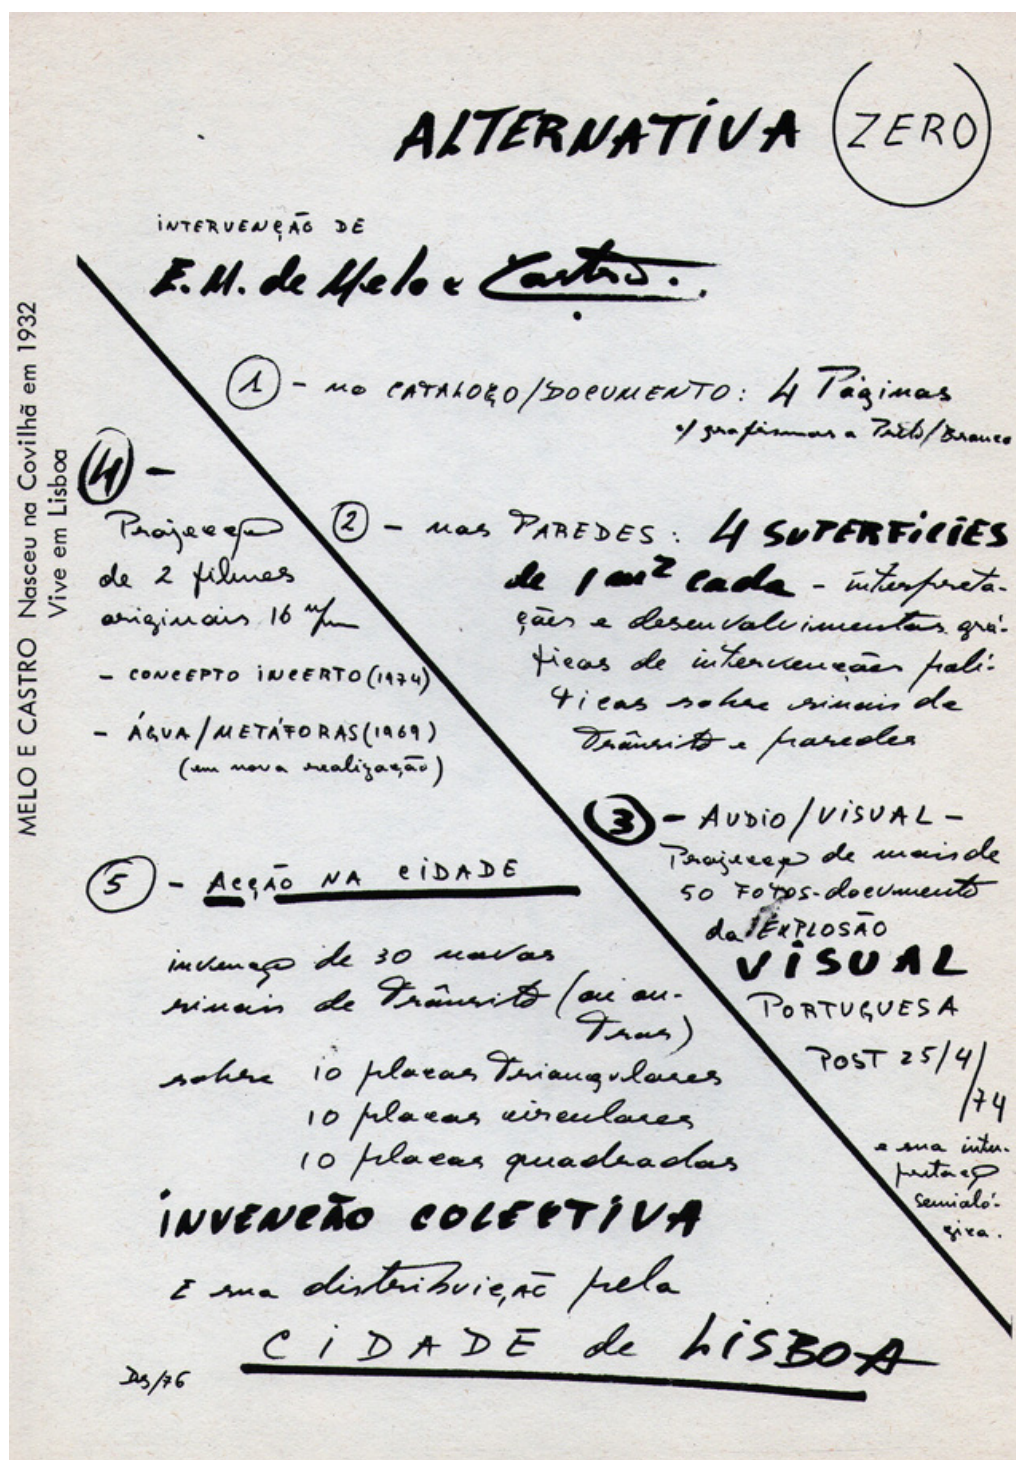 ALTERNATIVA (ZERO)
INTERVENÇÃO DE
E. M. de Melo e Castro.
1 - no CATALOGO/DOCUMENTO: 4 Páginas
c/ grafismos a Preto/Branco
2 - nas PAREDES: 4 SUPERFICIES
de 1 m² cada - interpreta-
ções e desenvolvimentos grá-
ficos de intervenções polí-
ticas sobre sinais de
trânsito e paredes
3 - AUDIO/VISUAL -
Projecção de mais de
50 FOTOS-documento
da EXPLOSÃO
VISUAL
PORTUGUESA
POST 25/4/
/74
e sua inter-
pretação
semioló-
gica.
4 -
Projecção
de 2 filmes
originais 16 m/m
- CONCEPTO INCERTO (1974)
- ÁGUA/METÁFORAS (1969)
(em nova realização)
5 - ACÇÃO NA CIDADE
invenção de 30 novos
sinais de trânsito (ou ou-
tros)
sobre 10 placas triangulares
10 placas circulares
10 placas quadradas
INVENÇÃO COLECTIVA
E sua distribuição pela
CIDADE de LISBOA
/76
MELO E CASTRO Nasceu na Covilhã em 1932
Vive em Lisboa